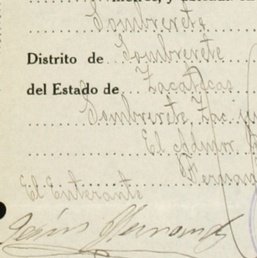 Sombrerete
Distrito de Sombrerete
del Estado de Zacatecas
Sombrerete, Zac.
El Admor.
El Enterante
Jesús Hernand